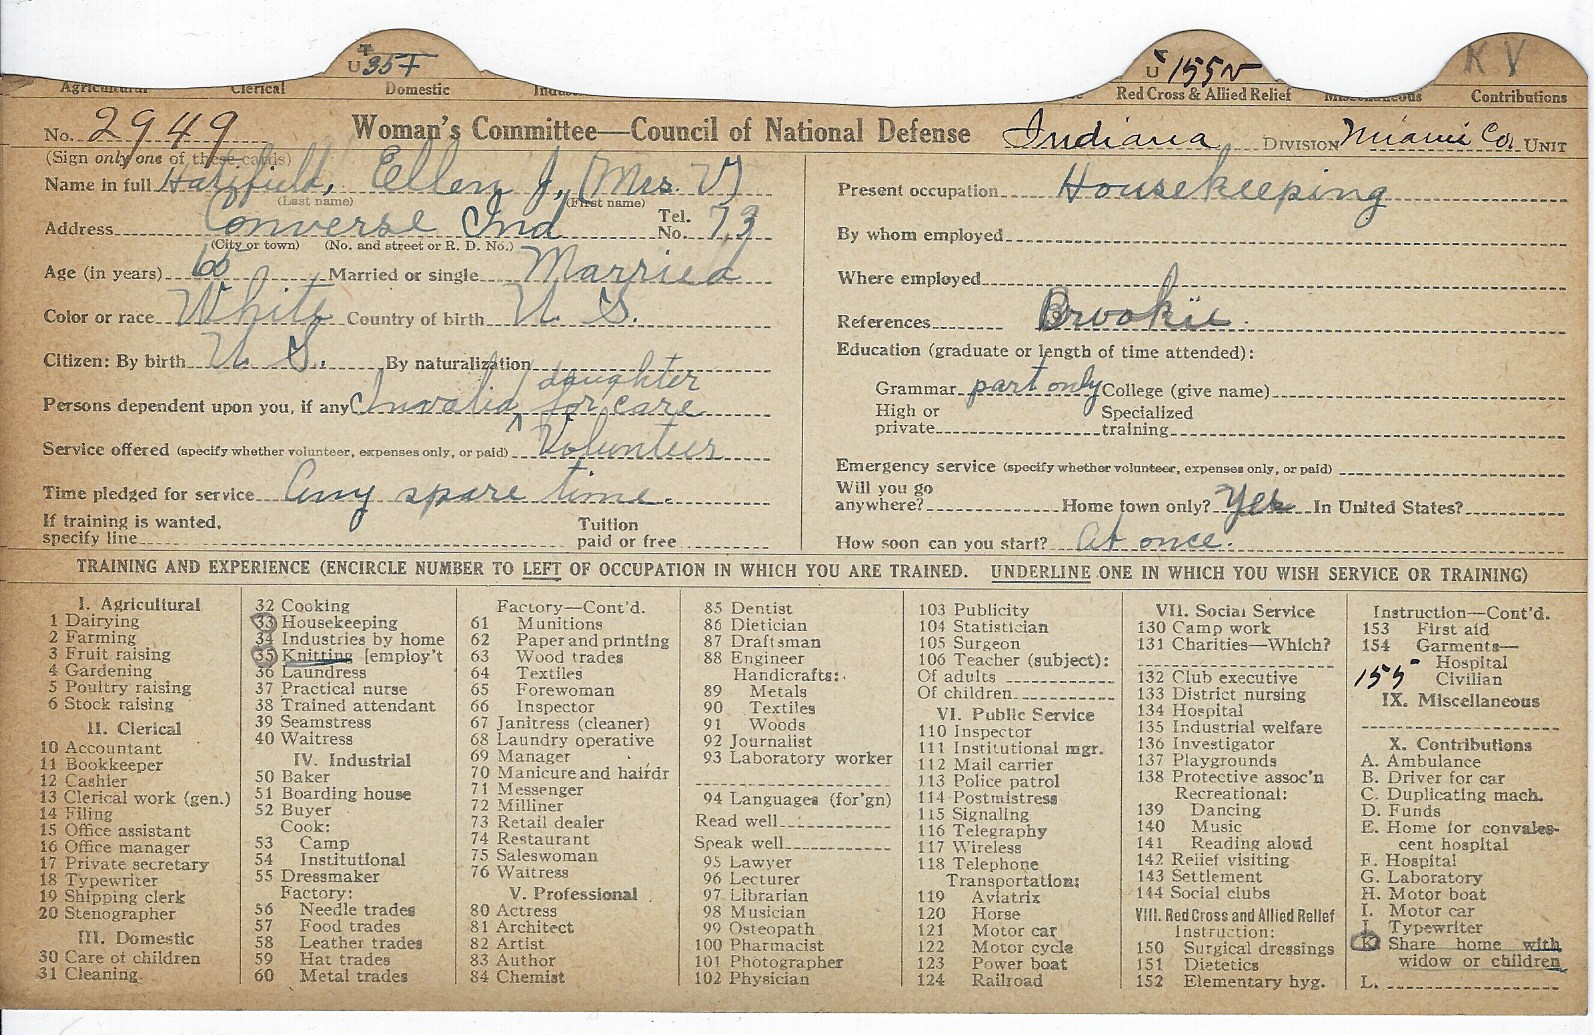 U 35 T
U 155 V
K V
Agricultural Clerical Domestic Red Cross & Allied Relief Miscellaneous Contributions
No. 2949 Woman's Committee—Council of National Defense Indiana DIVISION Miami Co. UNIT
(Sign only one of these cards)
Name in full Hatfield, Ellen J., (Mrs. V)
(Last name) (First name)
Address Converse Ind Tel. No. 73
(City or town) (No. and street or R. D. No.)
Age (in years) 65 Married or single Married
Color or race White Country of birth U. S.
Citizen: By birth U. S. By naturalization
daughter
Persons dependent upon you, if any Invalid ^ for care
Service offered (specify whether volunteer, expenses only, or paid) Volunteer
Time pledged for service Any spare time.
If training is wanted, specify line Tuition paid or free
Present occupation Housekeeping
By whom employed
Where employed
References
Education (graduate or length of time attended):
Grammar part only College (give name)
High or private Specialized training
Emergency service (specify whether volunteer, expenses only, or paid)
Will you go anywhere? Home town only? Yes In United States?
How soon can you start? At once.
TRAINING AND EXPERIENCE (ENCIRCLE NUMBER TO LEFT OF OCCUPATION IN WHICH YOU ARE TRAINED. UNDERLINE ONE IN WHICH YOU WISH SERVICE OR TRAINING)
I. Agricultural
1 Dairying
2 Farming
3 Fruit raising
4 Gardening
5 Poultry raising
6 Stock raising
II. Clerical
10 Accountant
11 Bookkeeper
12 Cashier
13 Clerical work (gen.)
14 Filing
15 Office assistant
16 Office manager
17 Private secretary
18 Typewriter
19 Shipping clerk
20 Stenographer
III. Domestic
30 Care of children
31 Cleaning
32 Cooking
33 Housekeeping
34 Industries by home
35 Knitting [employ't
36 Laundress
37 Practical nurse
38 Trained attendant
39 Seamstress
40 Waitress
IV. Industrial
50 Baker
51 Boarding house
52 Buyer
Cook:
53 Camp
54 Institutional
55 Dressmaker
Factory:
56 Needle trades
57 Food trades
58 Leather trades
59 Hat trades
60 Metal trades
Factory—Cont'd.
61 Munitions
62 Paper and printing
63 Wood trades
64 Textiles
65 Forewoman
66 Inspector
67 Janitress (cleaner)
68 Laundry operative
69 Manager
70 Manicure and hairdr
71 Messenger
72 Milliner
73 Retail dealer
74 Restaurant
75 Saleswoman
76 Waitress
V. Professional
80 Actress
81 Architect
82 Artist
83 Author
84 Chemist
85 Dentist
86 Dietician
87 Draftsman
88 Engineer
Handicrafts:
89 Metals
90 Textiles
91 Woods
92 Journalist
93 Laboratory worker
94 Languages (for'gn)
Read well
Speak well
95 Lawyer
96 Lecturer
97 Librarian
98 Musician
99 Osteopath
100 Pharmacist
101 Photographer
102 Physician
103 Publicity
104 Statistician
105 Surgeon
106 Teacher (subject):
Of adults
Of children
VI. Public Service
110 Inspector
111 Institutional mgr.
112 Mail carrier
113 Police patrol
114 Postmistress
115 Signaling
116 Telegraphy
117 Wireless
118 Telephone
Transportation:
119 Aviatrix
120 Horse
121 Motor car
122 Motor cycle
123 Power boat
124 Railroad
VII. Social Service
130 Camp work
131 Charities—Which?
132 Club executive
133 District nursing
134 Hospital
135 Industrial welfare
136 Investigator
137 Playgrounds
138 Protective assoc'n
Recreational:
139 Dancing
140 Music
141 Reading aloud
142 Relief visiting
143 Settlement
144 Social clubs
VIII. Red Cross and Allied Relief
Instruction:
150 Surgical dressings
151 Dietetics
152 Elementary hyg.
Instruction—Cont'd.
153 First aid
154 Garments—
Hospital
155 Civilian
IX. Miscellaneous
X. Contributions
A. Ambulance
B. Driver for car
C. Duplicating mach.
D. Funds
E. Home for convales-
cent hospital
F. Hospital
G. Laboratory
H. Motor boat
I. Motor car
J. Typewriter
K. Share home with
widow or children
L.